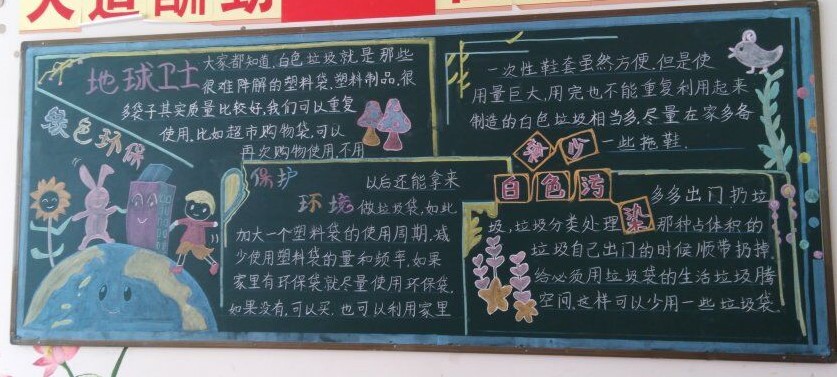 地球卫士
大家都知道,白色垃圾就是那些
很难降解的塑料袋,塑料制品,很
多袋子其实质量比较好,我们可以重复
使用,比如超市购物袋,可以
再次购物使用,不用
绿色环保
保护
环境
以后还能拿来
做垃圾袋,如此
加大一个塑料袋的使用周期,减
少使用塑料袋的量和频率,如果
家里有环保袋就尽量使用环保袋,
如果没有,可以买.也可以利用家里
一次性鞋套虽然方便,但是使
用量巨大,用完也不能重复利用起来
制造的白色垃圾相当多,尽量在家多备
一些拖鞋.
减少
白色污
染
多多出门扔垃
圾,垃圾分类处理,那种占体积的
垃圾自己出门的时候顺带扔掉,
给必须用垃圾袋的生活垃圾腾
空间,这样可以少用一些垃圾袋.